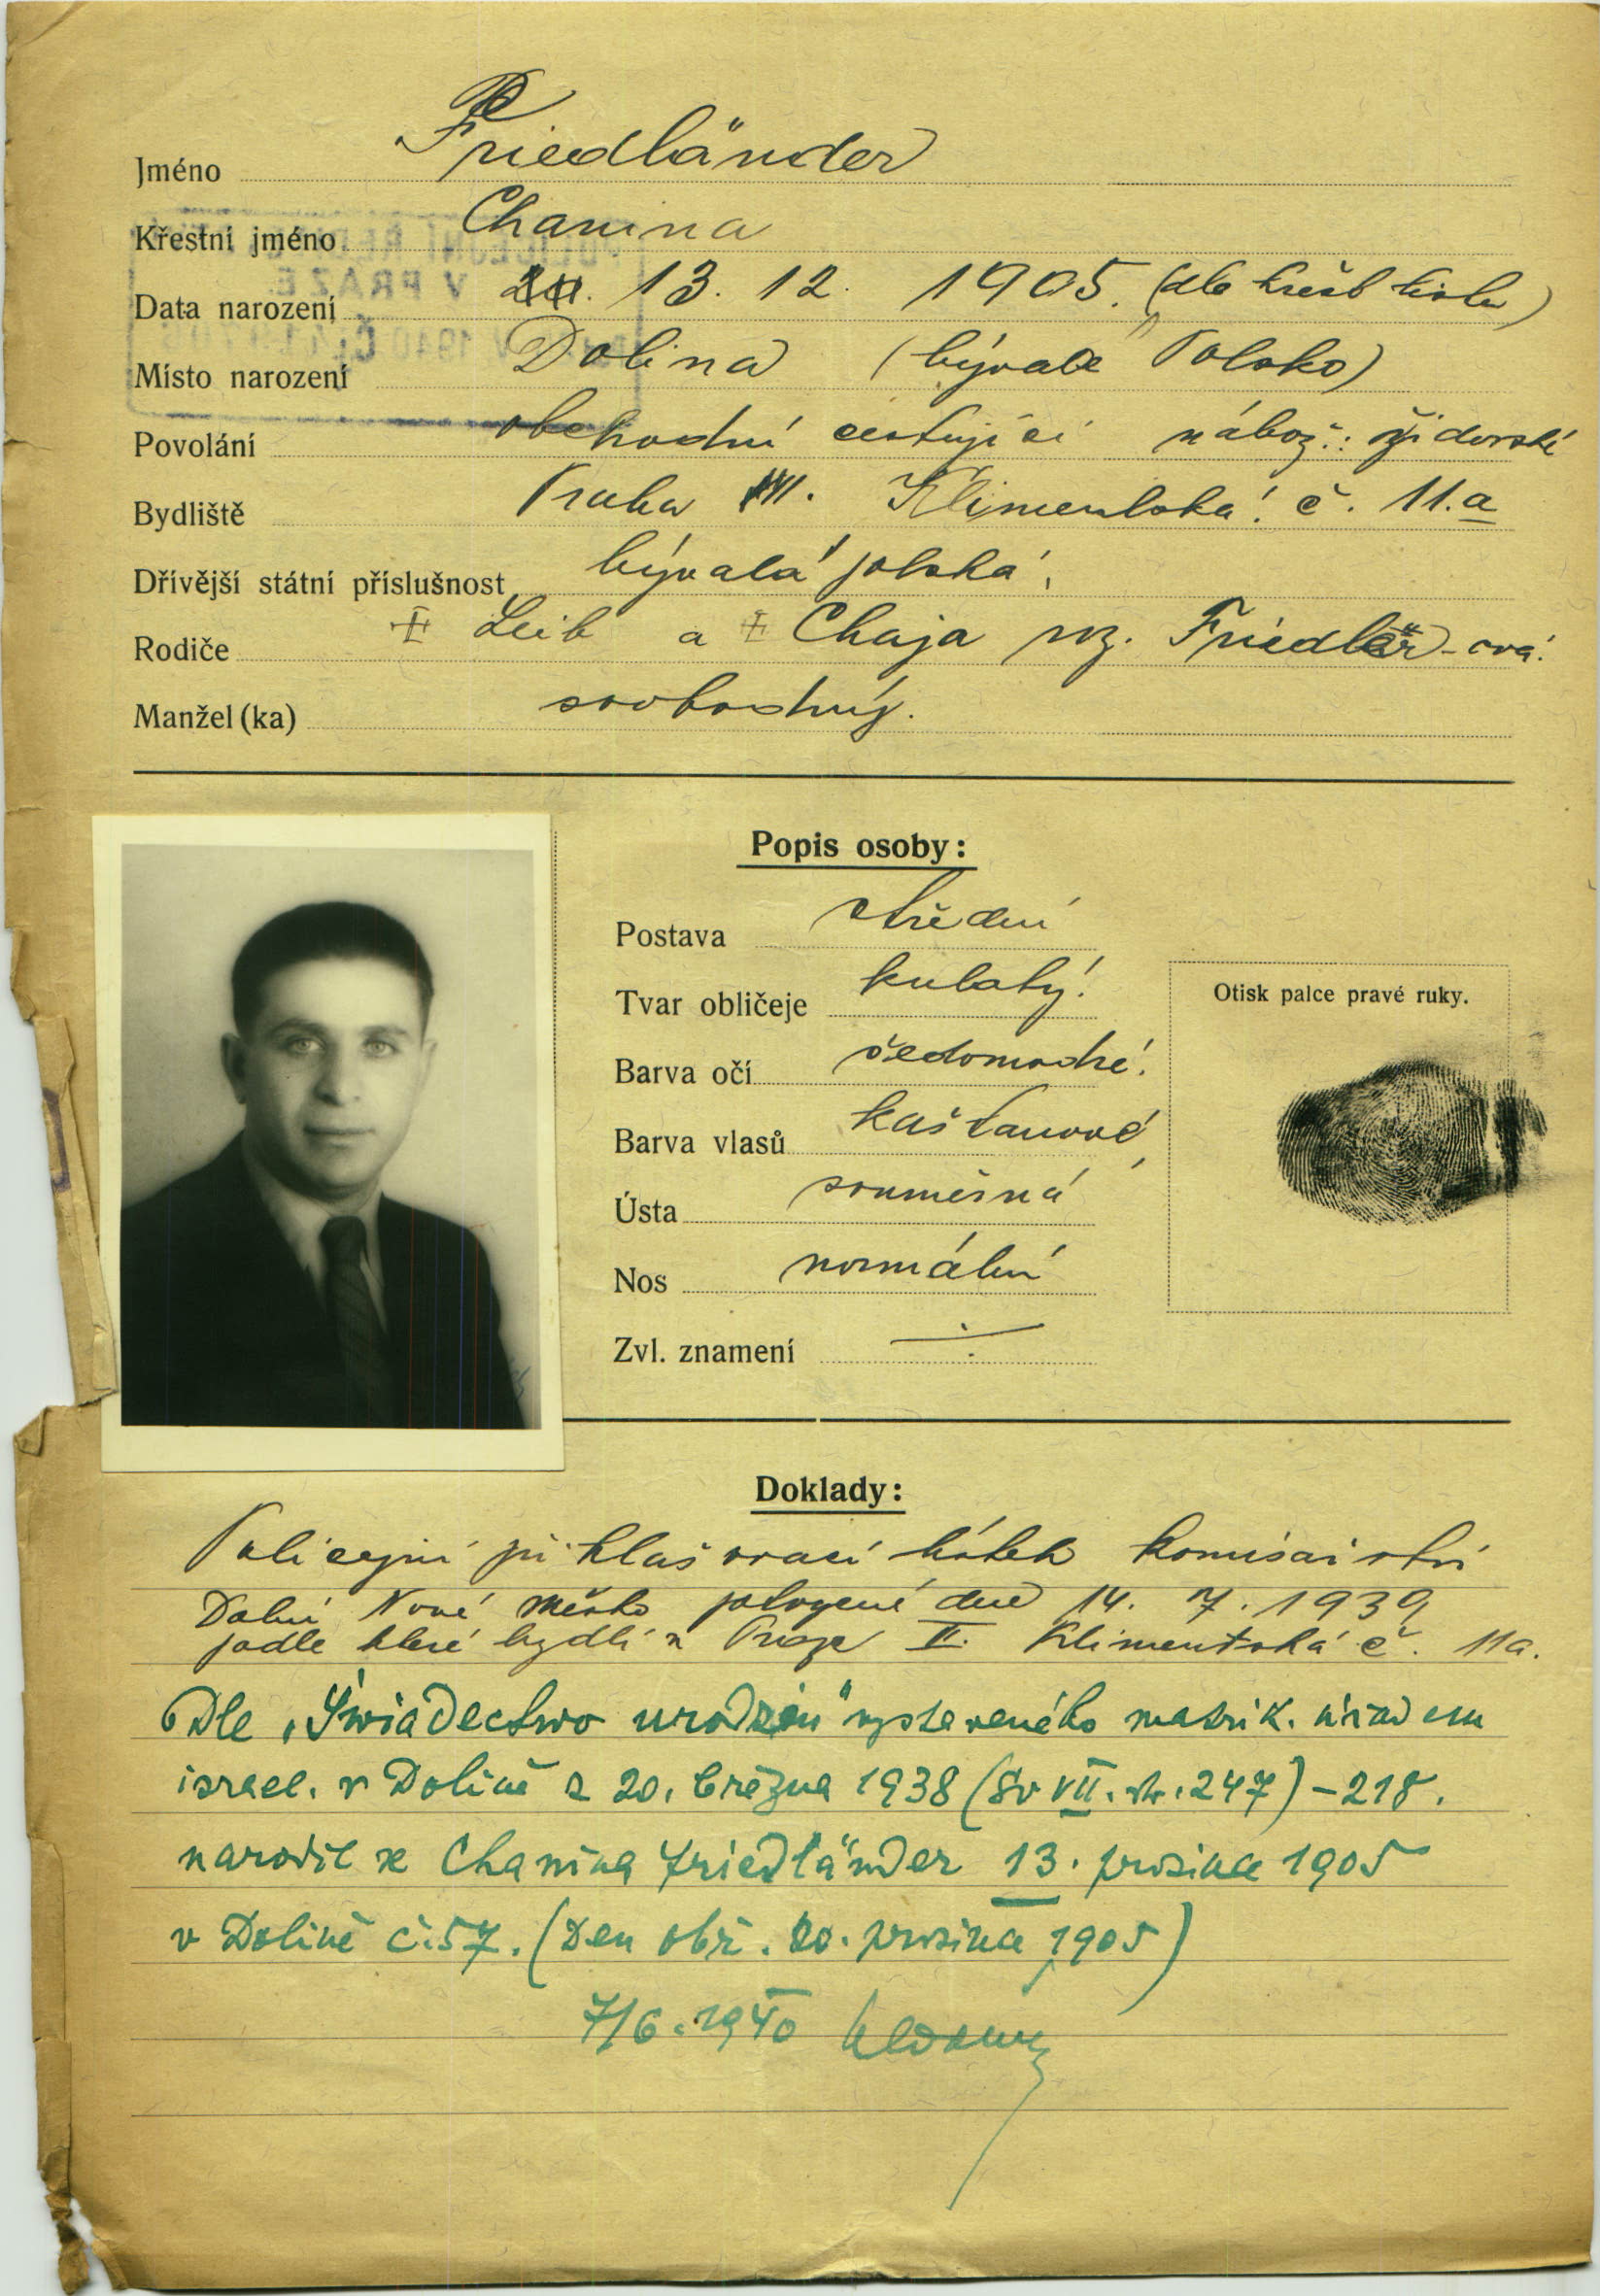 Jméno Friedländer
Křestní jméno Chanina
Data narození 13. 12. 1905. (dle křest listu)
Místo narození Dolina (bývalé Polsko)
Povolání obchodní cestující nábož.: židovské
Bydliště Praha II. Klimentská č. 11.a
Dřívější státní příslušnost bývalá polská.
Rodiče Leib a Chaja roz. Friedlär-ová.
Manžel(ka) svobodný.
Popis osoby:
Postava střední
Tvar obličeje kulatý.
Barva očí šedomodré.
Barva vlasů kaštanové
Ústa souměrná
Nos normální
Zvl. znamení
Otisk palce pravé ruky.
Doklady:
Policejní přihlašovací lístek komisařství
Dolní Nové Město potvrzené dne 14. 7. 1939
podle které bydlí v Praze II. Klimentská č. 11a.
Dle „Świadectwo urodzin" vystaveného matrik. úřadem
israel. v Dolině z 20. března 1938 (Sv VII. str. 247) – 218.
narodil se Chanina Friedländer 13. prosince 1905
v Dolině č. 57. (Den obř. 20. prosince 1905)
7/6. 1940
V PRAZE